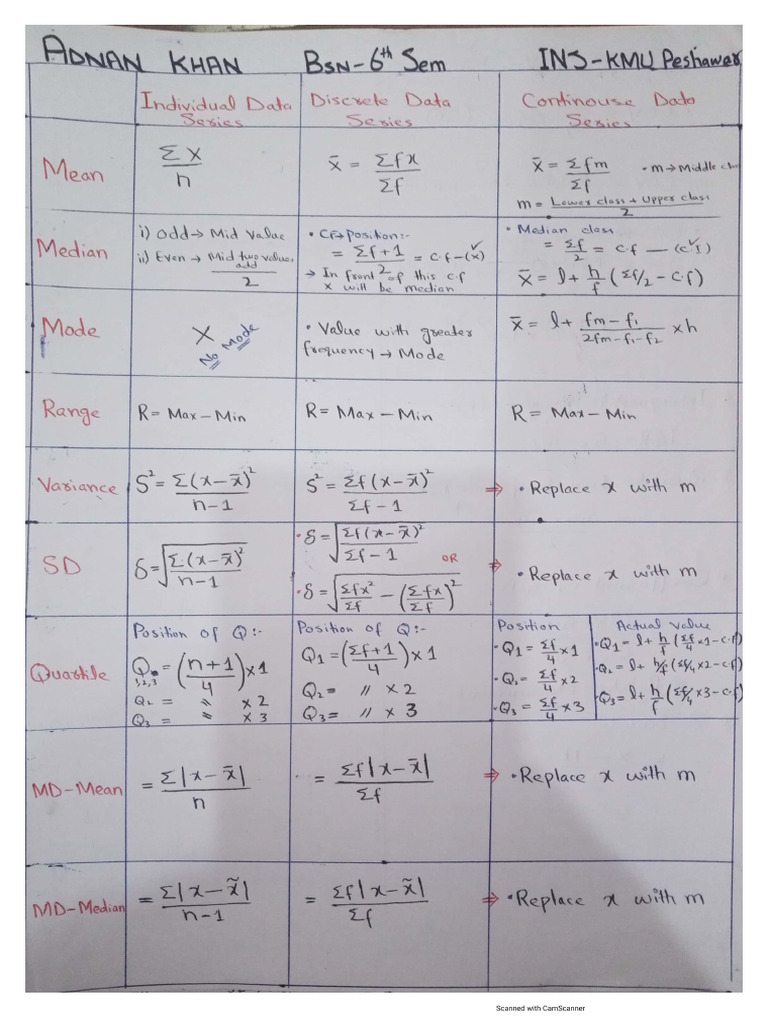 ADNAN KHAN BSN-6th Sem INS-KMU Peshawar
Individual Data Series
Discrete Data Series
Continouse Data Series
Mean
Σx / n
x̄ = Σfx / Σf
x̄ = Σfm / Σf • m→Middle
m = Lower class + Upper class / 2
Median
i) Odd → Mid Value
ii) Even → Mid two value, add / 2
• CF→Position:-
= Σf+1 / 2 = c.f – (x)
→ In front of this c.f
x will be median
• Median class
= Σf / 2 = c.f — (c I)
x̄ = l + h/f (Σf/2 – c.f)
Mode
X
No Mode
• Value with greater
frequency → Mode
x̄ = l + fm – f₁ / 2fm–f₁–f₂ × h
Range
R = Max – Min
R = Max – Min
R = Max – Min
Variance
S² = Σ(x–x̄)² / n–1
S² = Σf(x–x̄)² / Σf – 1
⇒ • Replace x with m
SD
δ = √Σ(x–x̄)² / n–1
• δ = √Σf(x–x̄)² / Σf – 1
OR
• δ = √Σfx²/Σf – (Σfx/Σf)²
⇒ • Replace x with m
Quartile
Position of Q:-
Q 1,2,3 = (n+1 / 4) × 1
Q₂ = 〃 × 2
Q₃ = 〃 × 3
Position of Q:-
Q₁ = (Σf+1 / 4) × 1
Q₂ = 〃 × 2
Q₃ = 〃 × 3
Position
• Q₁ = Σf/4 × 1
• Q₂ = Σf/4 × 2
• Q₃ = Σf/4 × 3
Actual value
• Q₁ = l + h/f (Σf/4 × 1 – c.f)
• Q₂ = l + h/f (Σf/4 × 2 – c.f)
• Q₃ = l + h/f (Σf/4 × 3 – c.f)
MD-Mean
= Σ|x – x̄| / n
= Σf|x – x̄| / Σf
⇒ • Replace x with m
MD-Median
= Σ|x – x̃| / n–1
= Σf|x – x̃| / Σf
⇒ • Replace x with m
Scanned with CamScanner